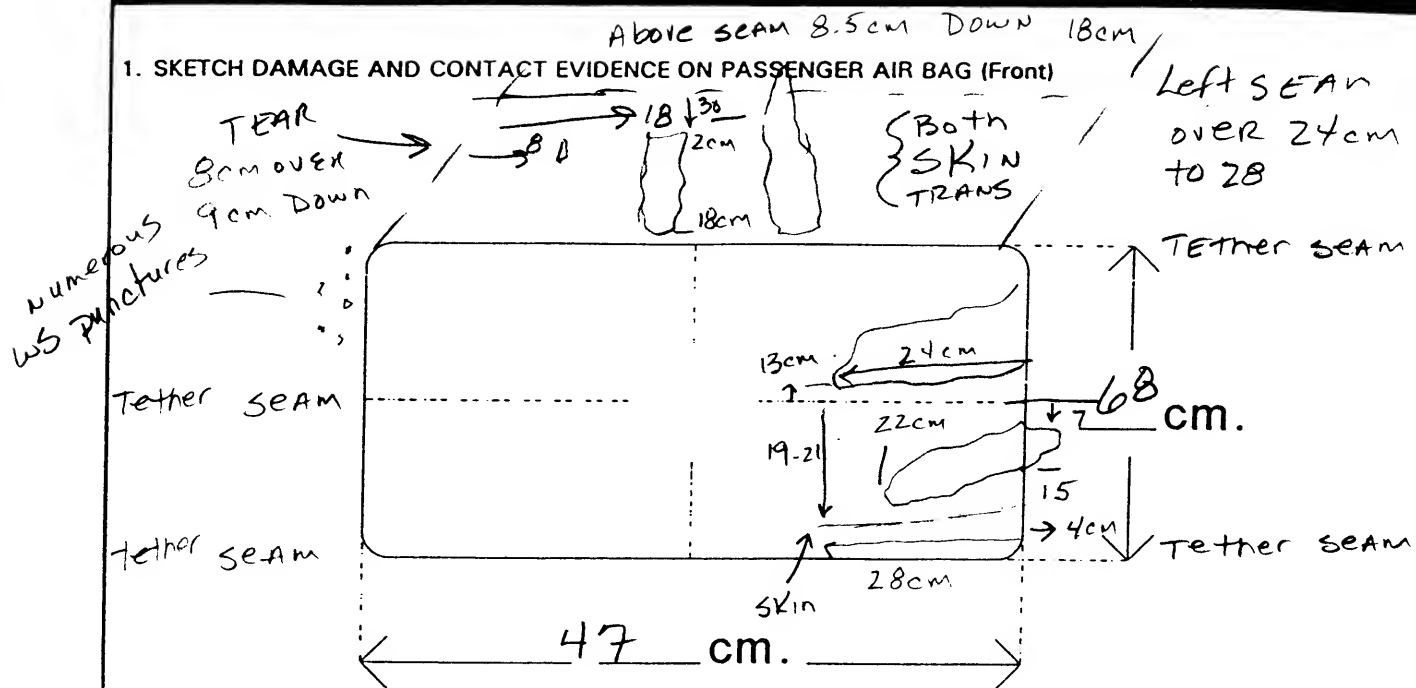 Above seam 8.5cm Down 18cm
1. SKETCH DAMAGE AND CONTACT EVIDENCE ON PASSENGER AIR BAG (Front)
Left SEAM
over 24cm
to 28
TEAR
8cm over
9cm Down
18 30
8
2cm
18cm
Both
SKIN
TRANS
numerous
WS punctures
Tether seam
13cm
24cm
Tether seam
68 cm.
7
22cm
19-21
15
4cm
tether seam
Tether seam
28cm
SKin
47 cm.